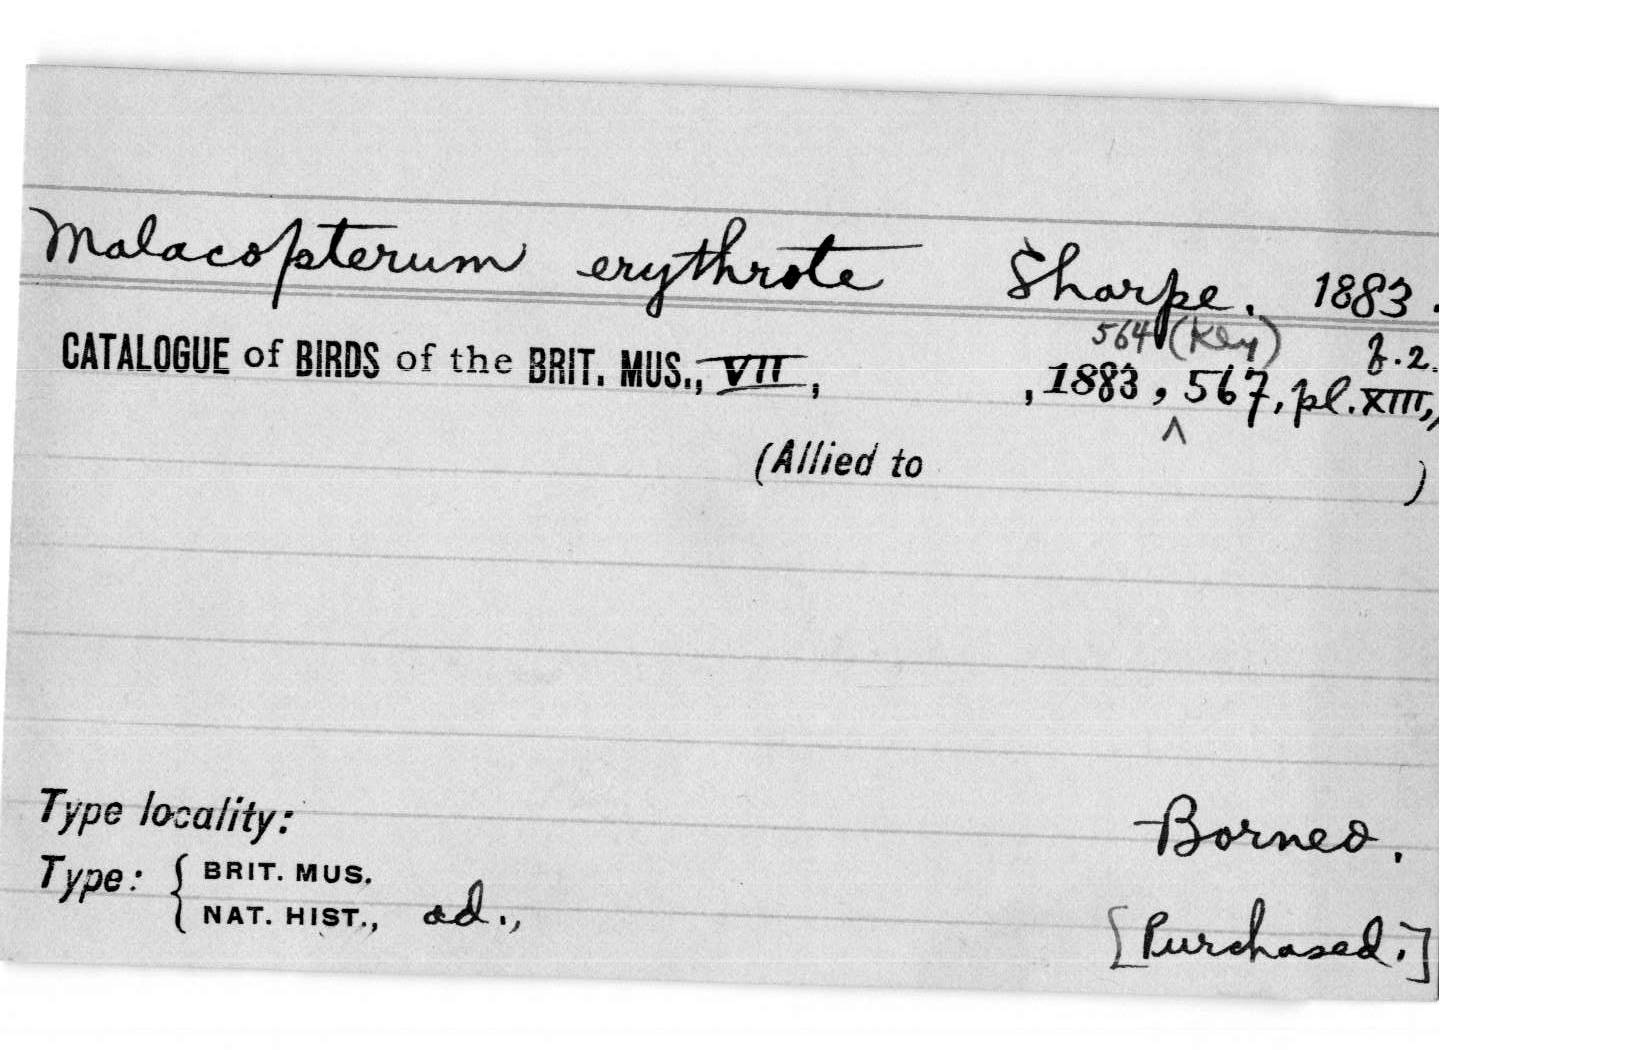 Malacopterum erythrote Sharpe. 1883.
564 (Key) f.2.
CATALOGUE of BIRDS of the BRIT. MUS., VII, , 1883, ^ 567, pl. XIII,
(Allied to )
Type locality: Borneo.
Type: { BRIT. MUS.
NAT. HIST., ad., [Purchased.]